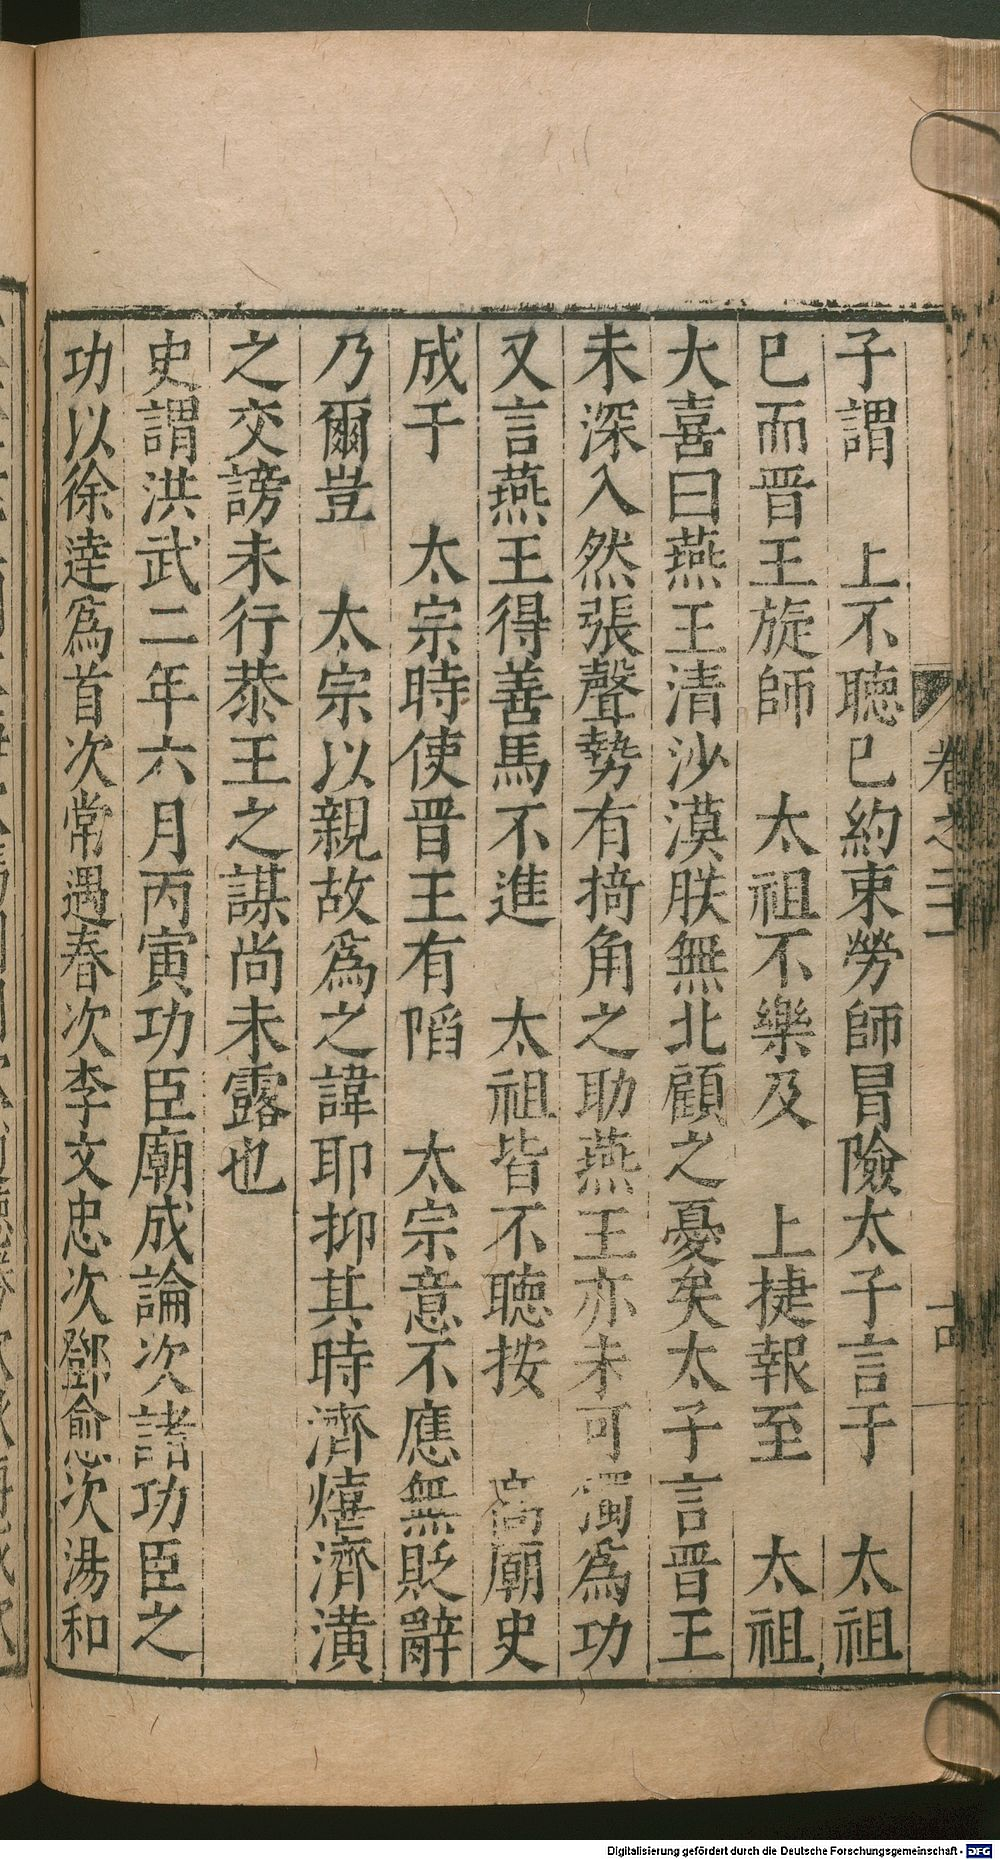 子謂　上不聴已約束勞師冒險太子言于　太祖
已而晋王旋師　太祖不樂及　上捷報至　太祖
大喜曰燕王清沙漠朕無北顧之憂矣太子言晋王
未深入然張聲勢有掎角之助燕王亦未可獨爲功
又言燕王得善馬不進　太祖皆不聴按　高廟史
成于　太宗時使晋王有䧟　太宗意不應無貶辭
乃爾豈　太宗以親故爲之諱耶抑其時濟熺濟潢
之交謗未行恭王之謀尚未露也
史謂洪武二年六月丙寅功臣廟成論次諸功臣之
功以徐達爲首次常遇春次李文忠次鄧愈次湯和
卷之二
Digitalisierung gefördert durch die Deutsche Forschungsgemeinschaft - DFG